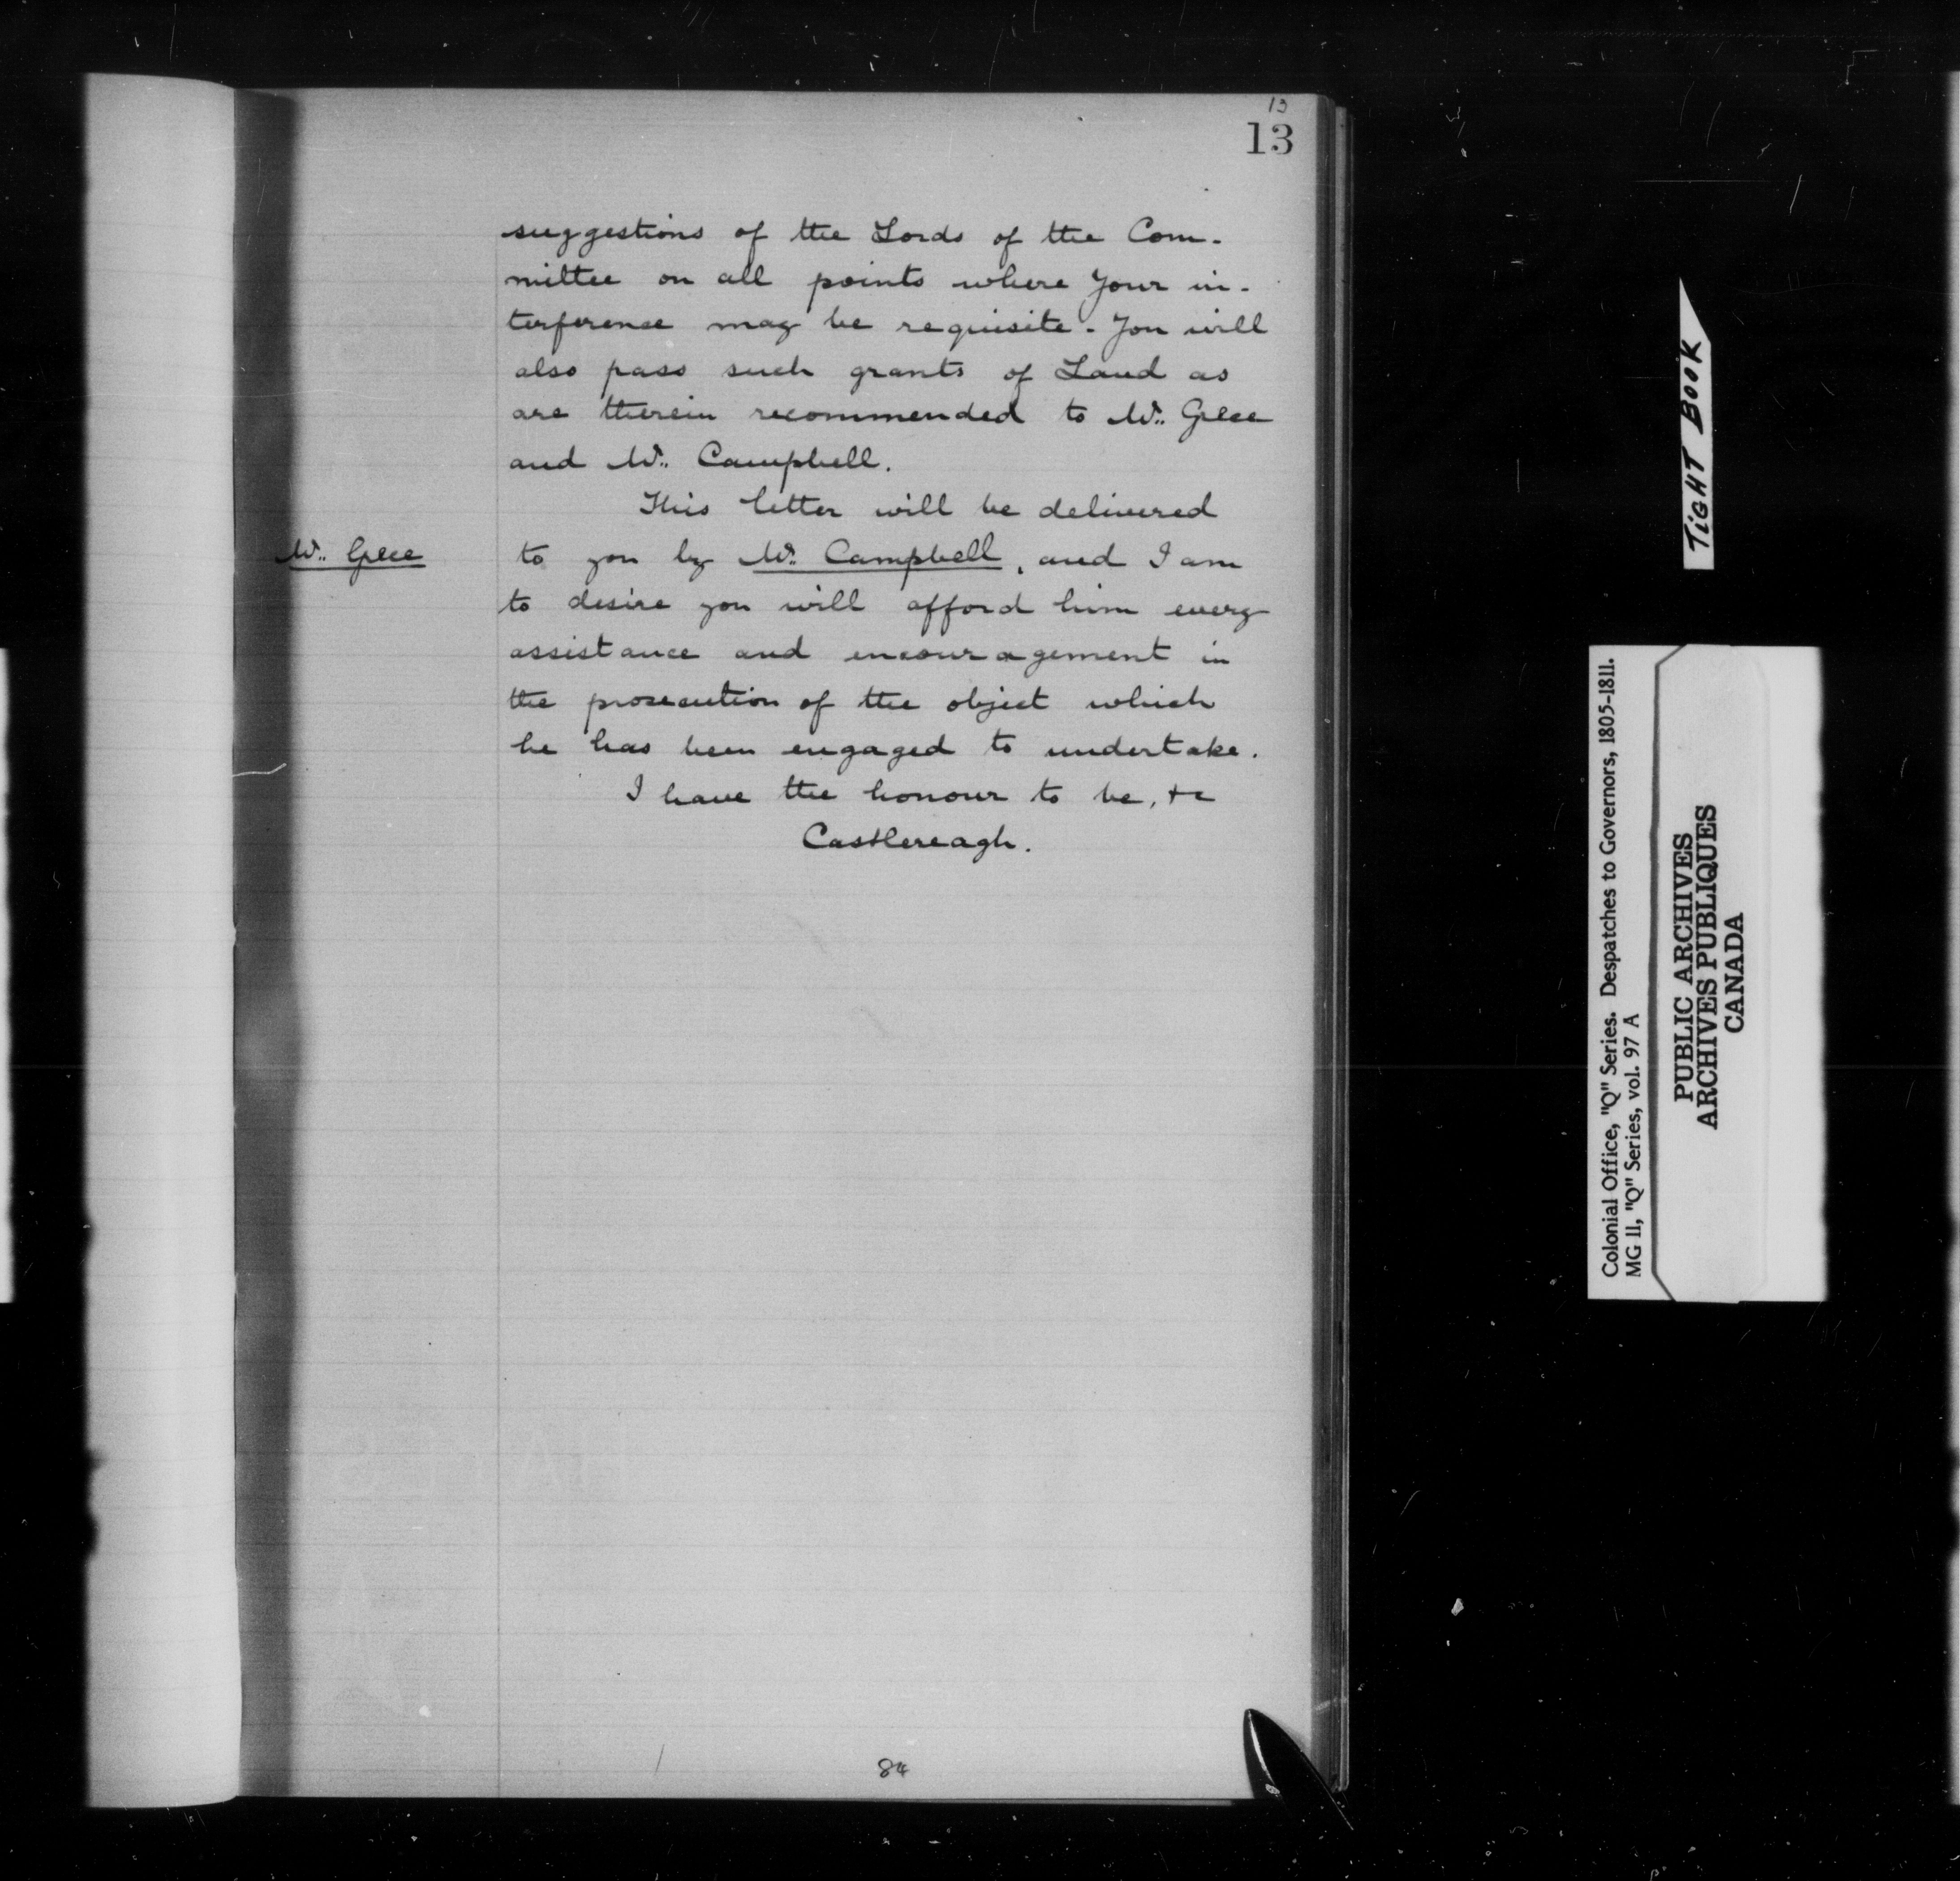 13
13
suggestions of the Lords of the Com-
mittee on all points where Your in-
terference may be requisite. You will
also pass such grants of Land as
are therein recommended to Mr. Grece
and Mr. Campbell.
This letter will be delivered
Mr. Grece
to you by Mr. Campbell, and I am
to desire you will afford him every
assistance and encouragement in
the prosecution of the object which
he has been engaged to undertake.
I have the honour to be, &c
Castlereagh.
84
TIGHT BOOK
Colonial Office, "Q" Series. Despatches to Governors, 1805-1811.
MG 11, "Q" Series, vol. 97 A
PUBLIC ARCHIVES
ARCHIVES PUBLIQUES
CANADA